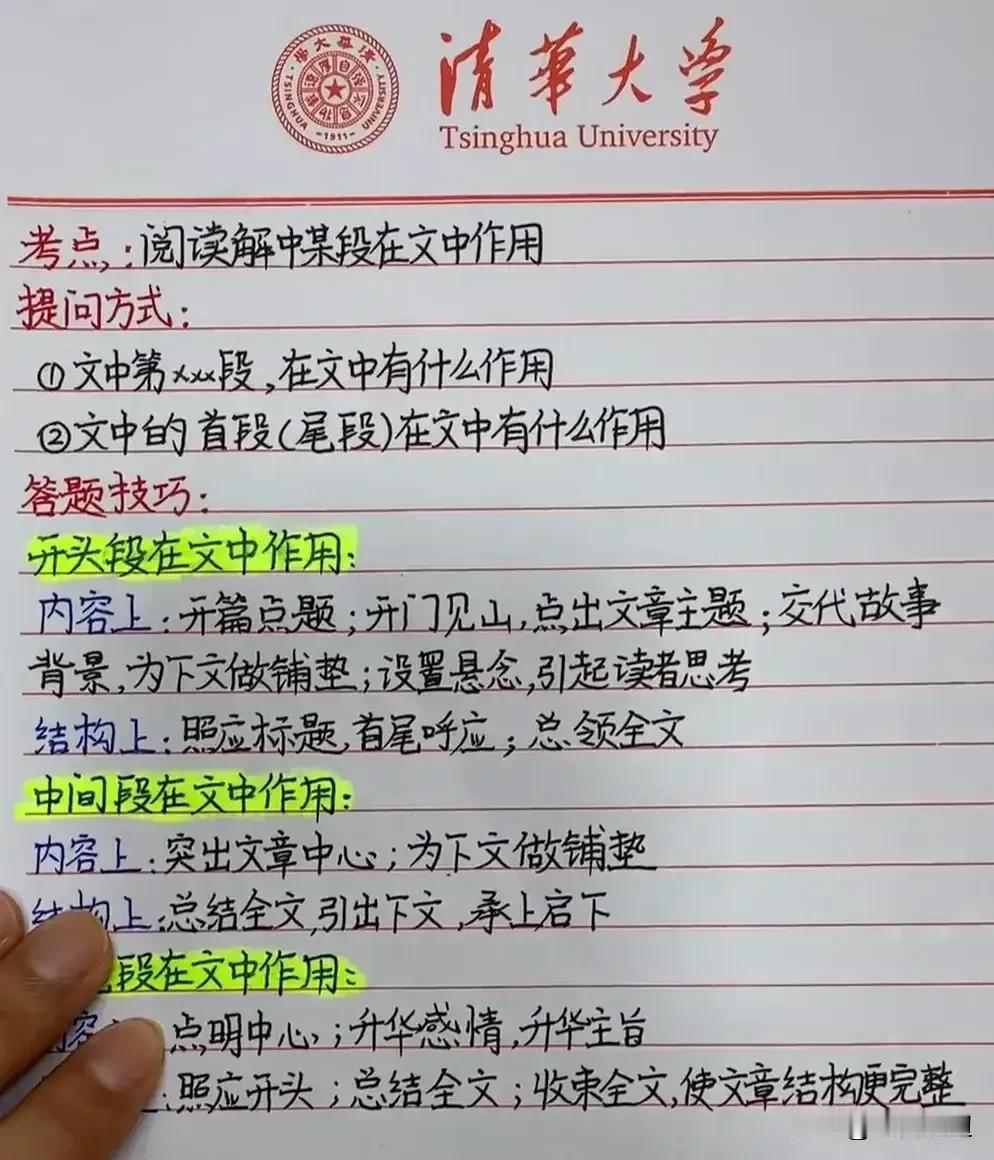 清华大学
Tsinghua University
TSINGHUA UNIVERSITY
-1911-
考点:阅读解中某段在文中作用
提问方式:
①文中第xxx段,在文中有什么作用
②文中的首段(尾段)在文中有什么作用
答题技巧:
开头段在文中作用:
内容上:开篇点题;开门见山,点出文章主题;交代故事
背景,为下文做铺垫;设置悬念,引起读者思考
结构上:照应标题,首尾呼应;总领全文
中间段在文中作用:
内容上:突出文章中心;为下文做铺垫
结构上:总结全文,引出下文,承上启下
段在文中作用:
内容 点明中心;升华感情,升华主旨
:照应开头;总结全文;收束全文,使文章结构更完整